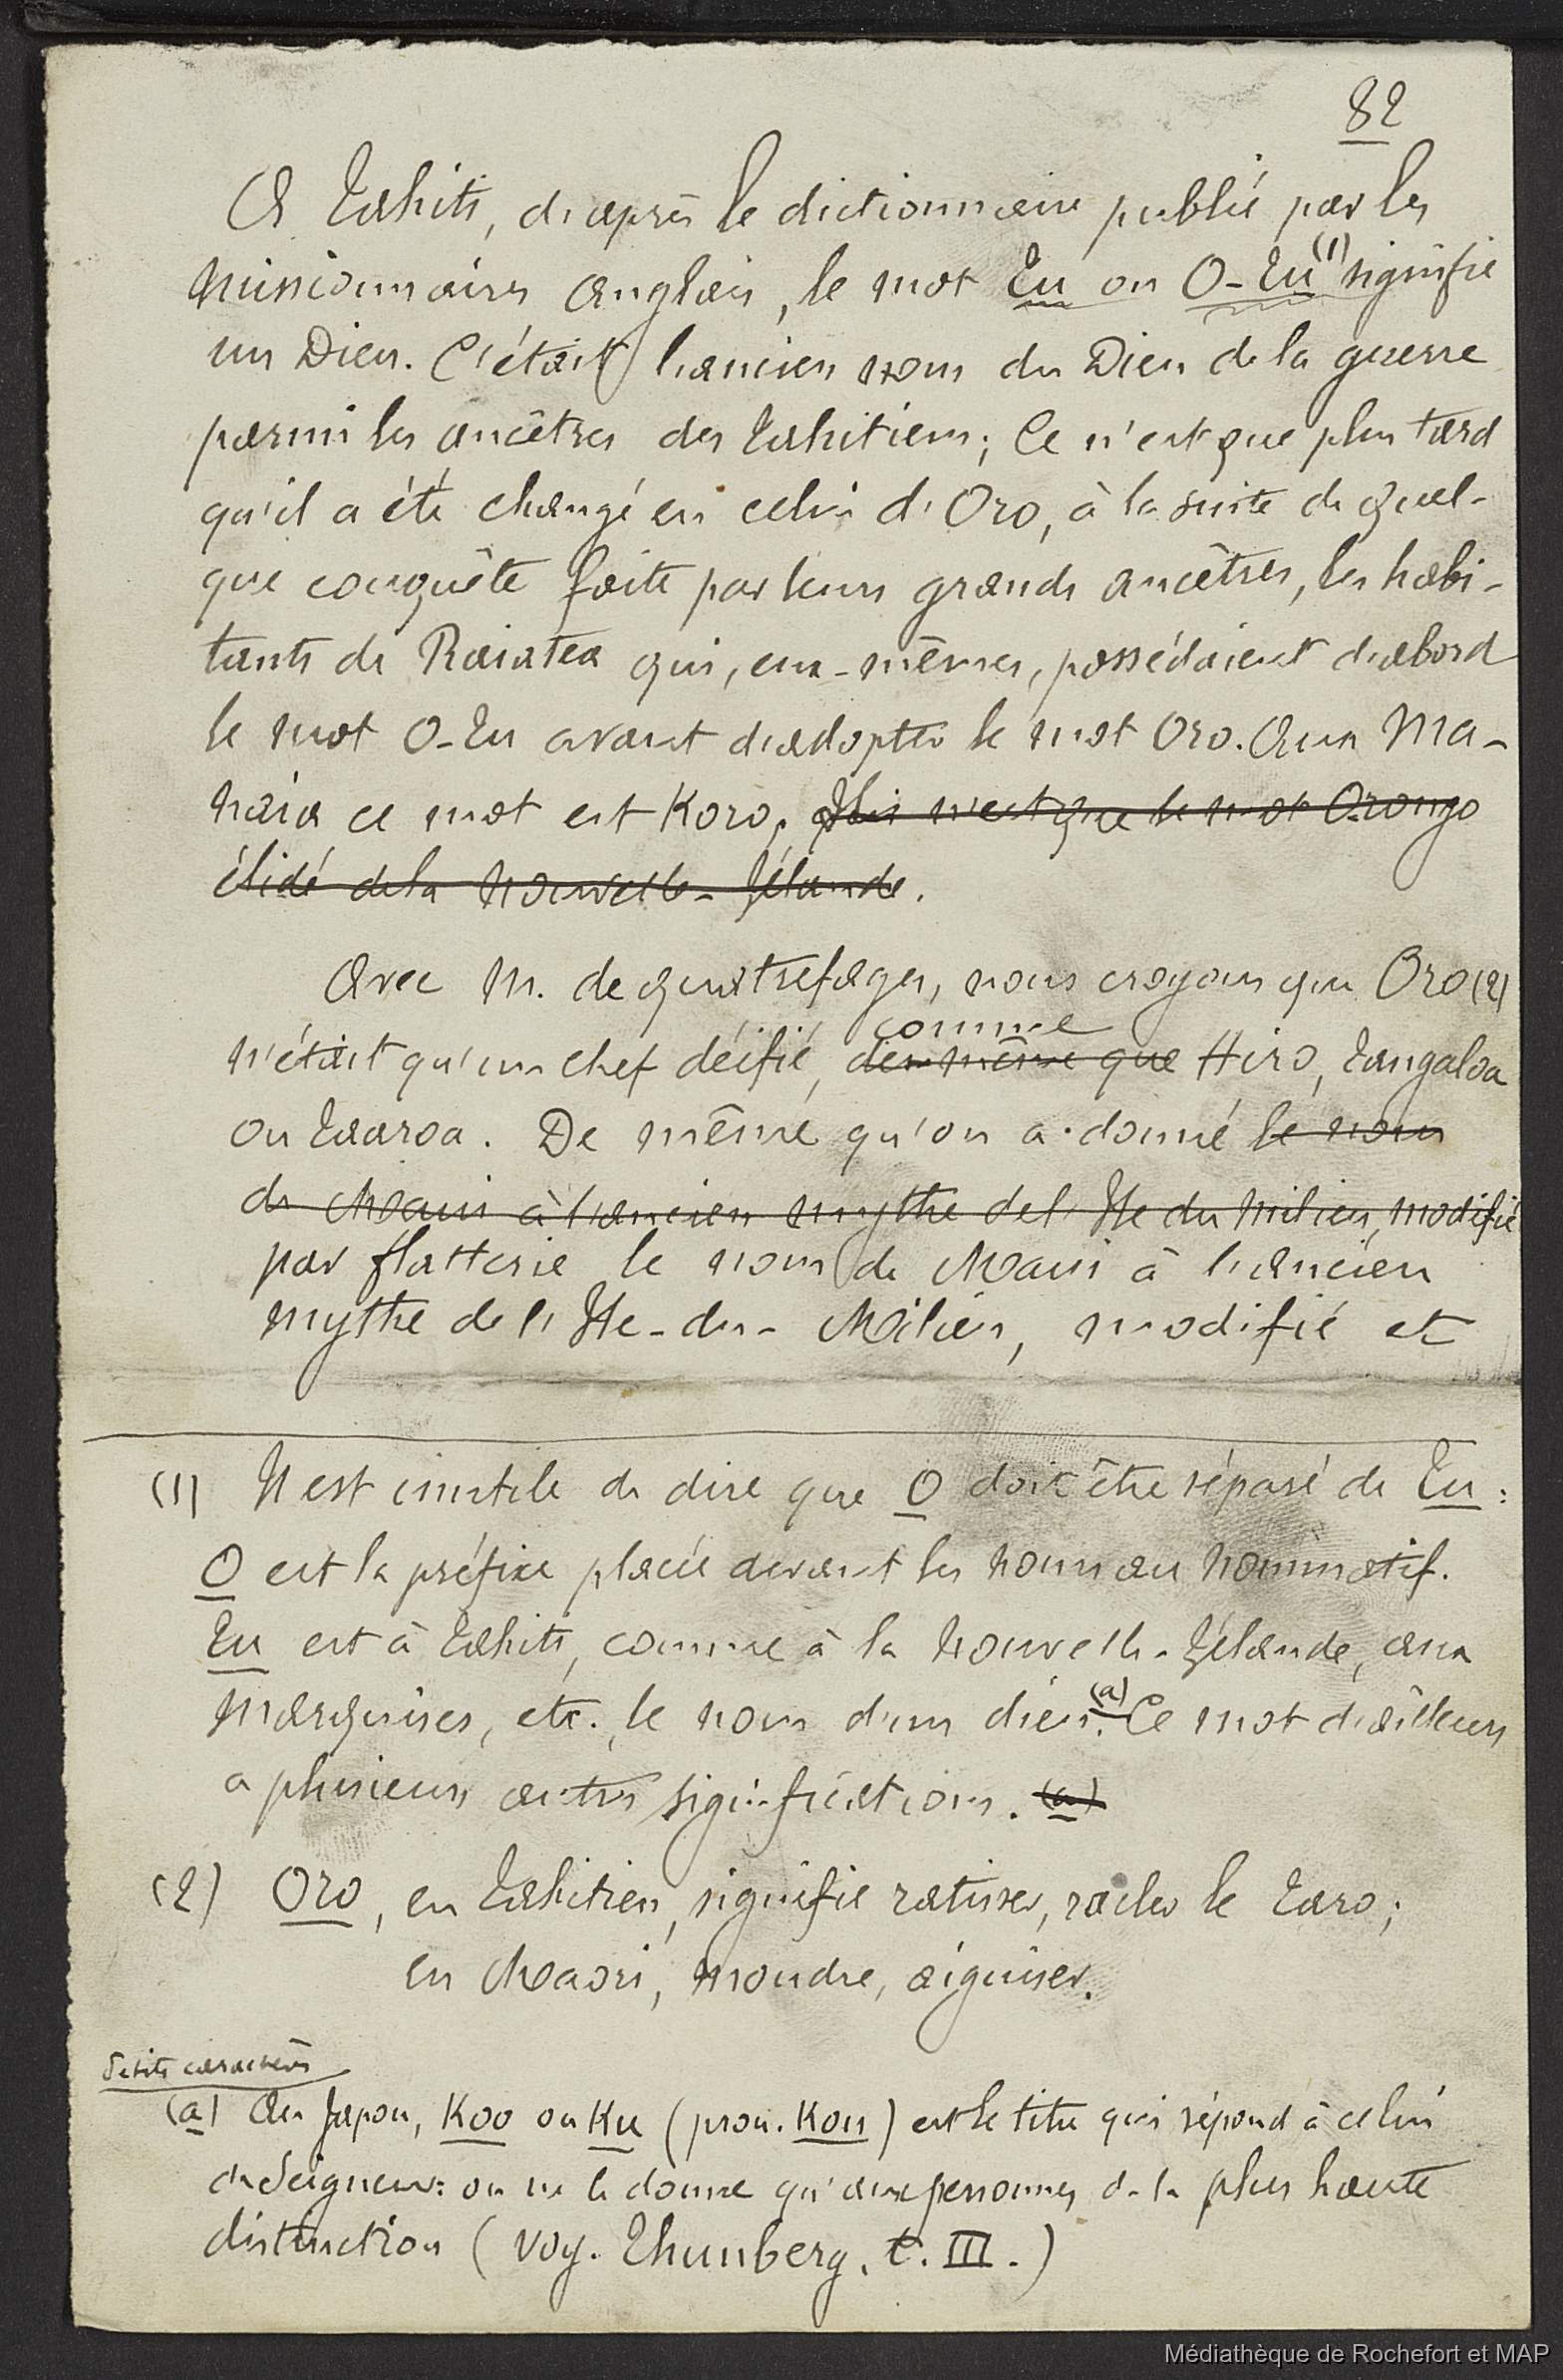 82
A Tahiti, d'après le dictionnaire publié par les
missionnaires anglais, le mot Tu ou O-Tu (1) signifie
un Dieu. C'était l'ancien nom du Dieu de la guerre
parmi les ancêtres des Tahitiens; Ce n'est que plus tard
qu'il a été changé en celui d'Oro, à la suite de quel-
que conquête faite par leurs grands ancêtres, les habi-
tants de Raiatea qui, eux-mêmes, possédaient d'abord
le mot O-Tu avant d'adopter le mot Oro. Aux Ma-
naia ce mot est Koro, n'est que le mot O-rongo
élidé de la Nouvelle-Zélande.
Avec M. de Quatrefages, nous croyons que Oro (2)
comme
n'était qu'un chef déifié, de même que Hiro, Tangaloa
ou Taaroa. De même qu'on a donné le nom
de Maui à l'ancien mythe de l'Ile du Milieu, modifié
par flatterie le nom de Maui à l'ancien
mythe de l'Ile-du-Milieu, modifié et
(1) Il est inutile de dire que O doit être séparé de Tu:
O est le préfixe placé devant les noms au nominatif.
Tu est à Tahiti, comme à la Nouvelle-Zélande, aux
Marquises, etc., le nom d'un dieu. (a) Ce mot d'ailleurs
a plusieurs autres significations. (a)
(2) Oro, en Tahitien, signifie ratisser, racler le Taro;
en Maori, moudre, aiguiser.
Petits caractères
(a) Au Japon, Koo ou Ku (pron. Kou) est le titre qui répond à celui
de Seigneur: on ne le donne qu'aux personnes de la plus haute
distinction (voy. Thunberg, t. III.)
Médiathèque de Rochefort et MAP